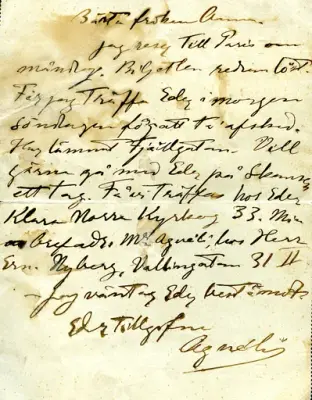 Bästa fröken Anna.
Jag reser till Paris om
måndag. Biljetten redan löst.
Får jag träffa Eder i morgon
Söndagen för att ta afsked.
Har lämnat Fjällgatan. Vill
gärna gå med Eder på Skansen
ett tag. Få vi träffas hos Eder
Klara Norra Kyrkog 33. Min
adress Mr Aguéli, hos Herr
Ern. Nyberg, Valhingatan 31 II
Jag väntar Eder
Eder tillgifne
Aguéli